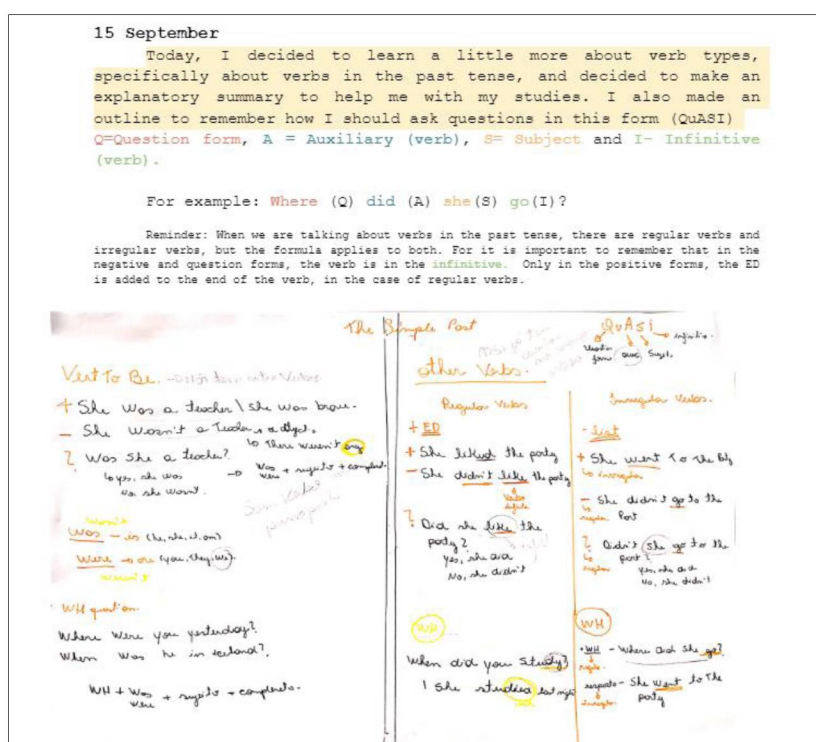 15 September
Today, I decided to learn a little more about verb types,
specifically about verbs in the past tense, and decided to make an
explanatory summary to help me with my studies. I also made an
outline to remember how I should ask questions in this form (QuASI)
Q=Question form, A = Auxiliary (verb), S= Subject and I- Infinitive
(verb).
For example: Where (Q) did (A) she(S) go(I)?
Reminder: When we are talking about verbs in the past tense, there are regular verbs and
irregular verbs, but the formula applies to both. For it is important to remember that in the
negative and question forms, the verb is in the infinitive. Only in the positive forms, the ED
is added to the end of the verb, in the case of regular verbs.
The Simple Past
Verb To Be.
+ She was a teacher \ she was brave.
- She wasn't a Teacher
↳ There weren't any
? Was she a teacher?
↳ yes, she was
No, she wasn't.
→ was + sujeito +
were
wasn't
was - is (he, she, it, am)
were → are (you, they, we)
weren't
WH question.
Where were you yesterday?
When was he in iceland?
WH + was + sujeito + complemento.
were
QuASI → infinitive.
Question form
other Verbs.
Regular Verbs
+ ED
+ She liked the party
- She didn't like the party
? Did she like the
party?
yes, she did
No, she didn't
WH
When did you study?
She studied last night
Irregular Verbs.
- list
+ She went To The
↳ irregular
- She didn't go to the
↳ regular
? Didn't she go to the
↳ regular
yes, she did
No, she didn't
WH
• WH - Where did she go?
resposta - She went to The
party